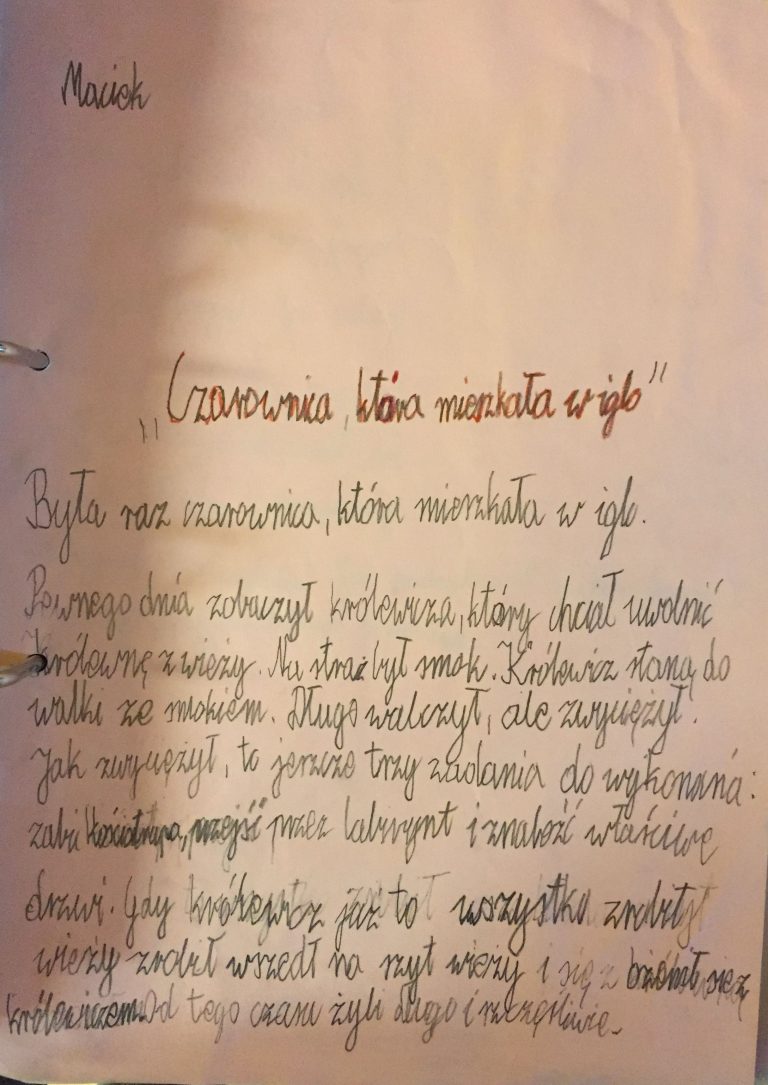 Maciek
„Czarownica, która mieszkała w iglo”
Była raz czarownica, która mieszkała w iglo.
Pewnego dnia zobaczył królewicza, który chciał uwolnić
królewnę z wieży. Na straż był smok. Królewicz staną do
walki ze smokiem. Długo walczył, ale zwyciężył.
Jak zwyciężył, to jeszcze trzy zadania do wykonaná:
zabi kościotrupa, przejść przez labirynt i znaleźć właściwę
drzwi. Gdy królewicz już to wszystko zrobił
wieży zrobił wszedł na szyt wieży i się z
królewiczem. Od tego czasu żyli długo i szczęśliwie.